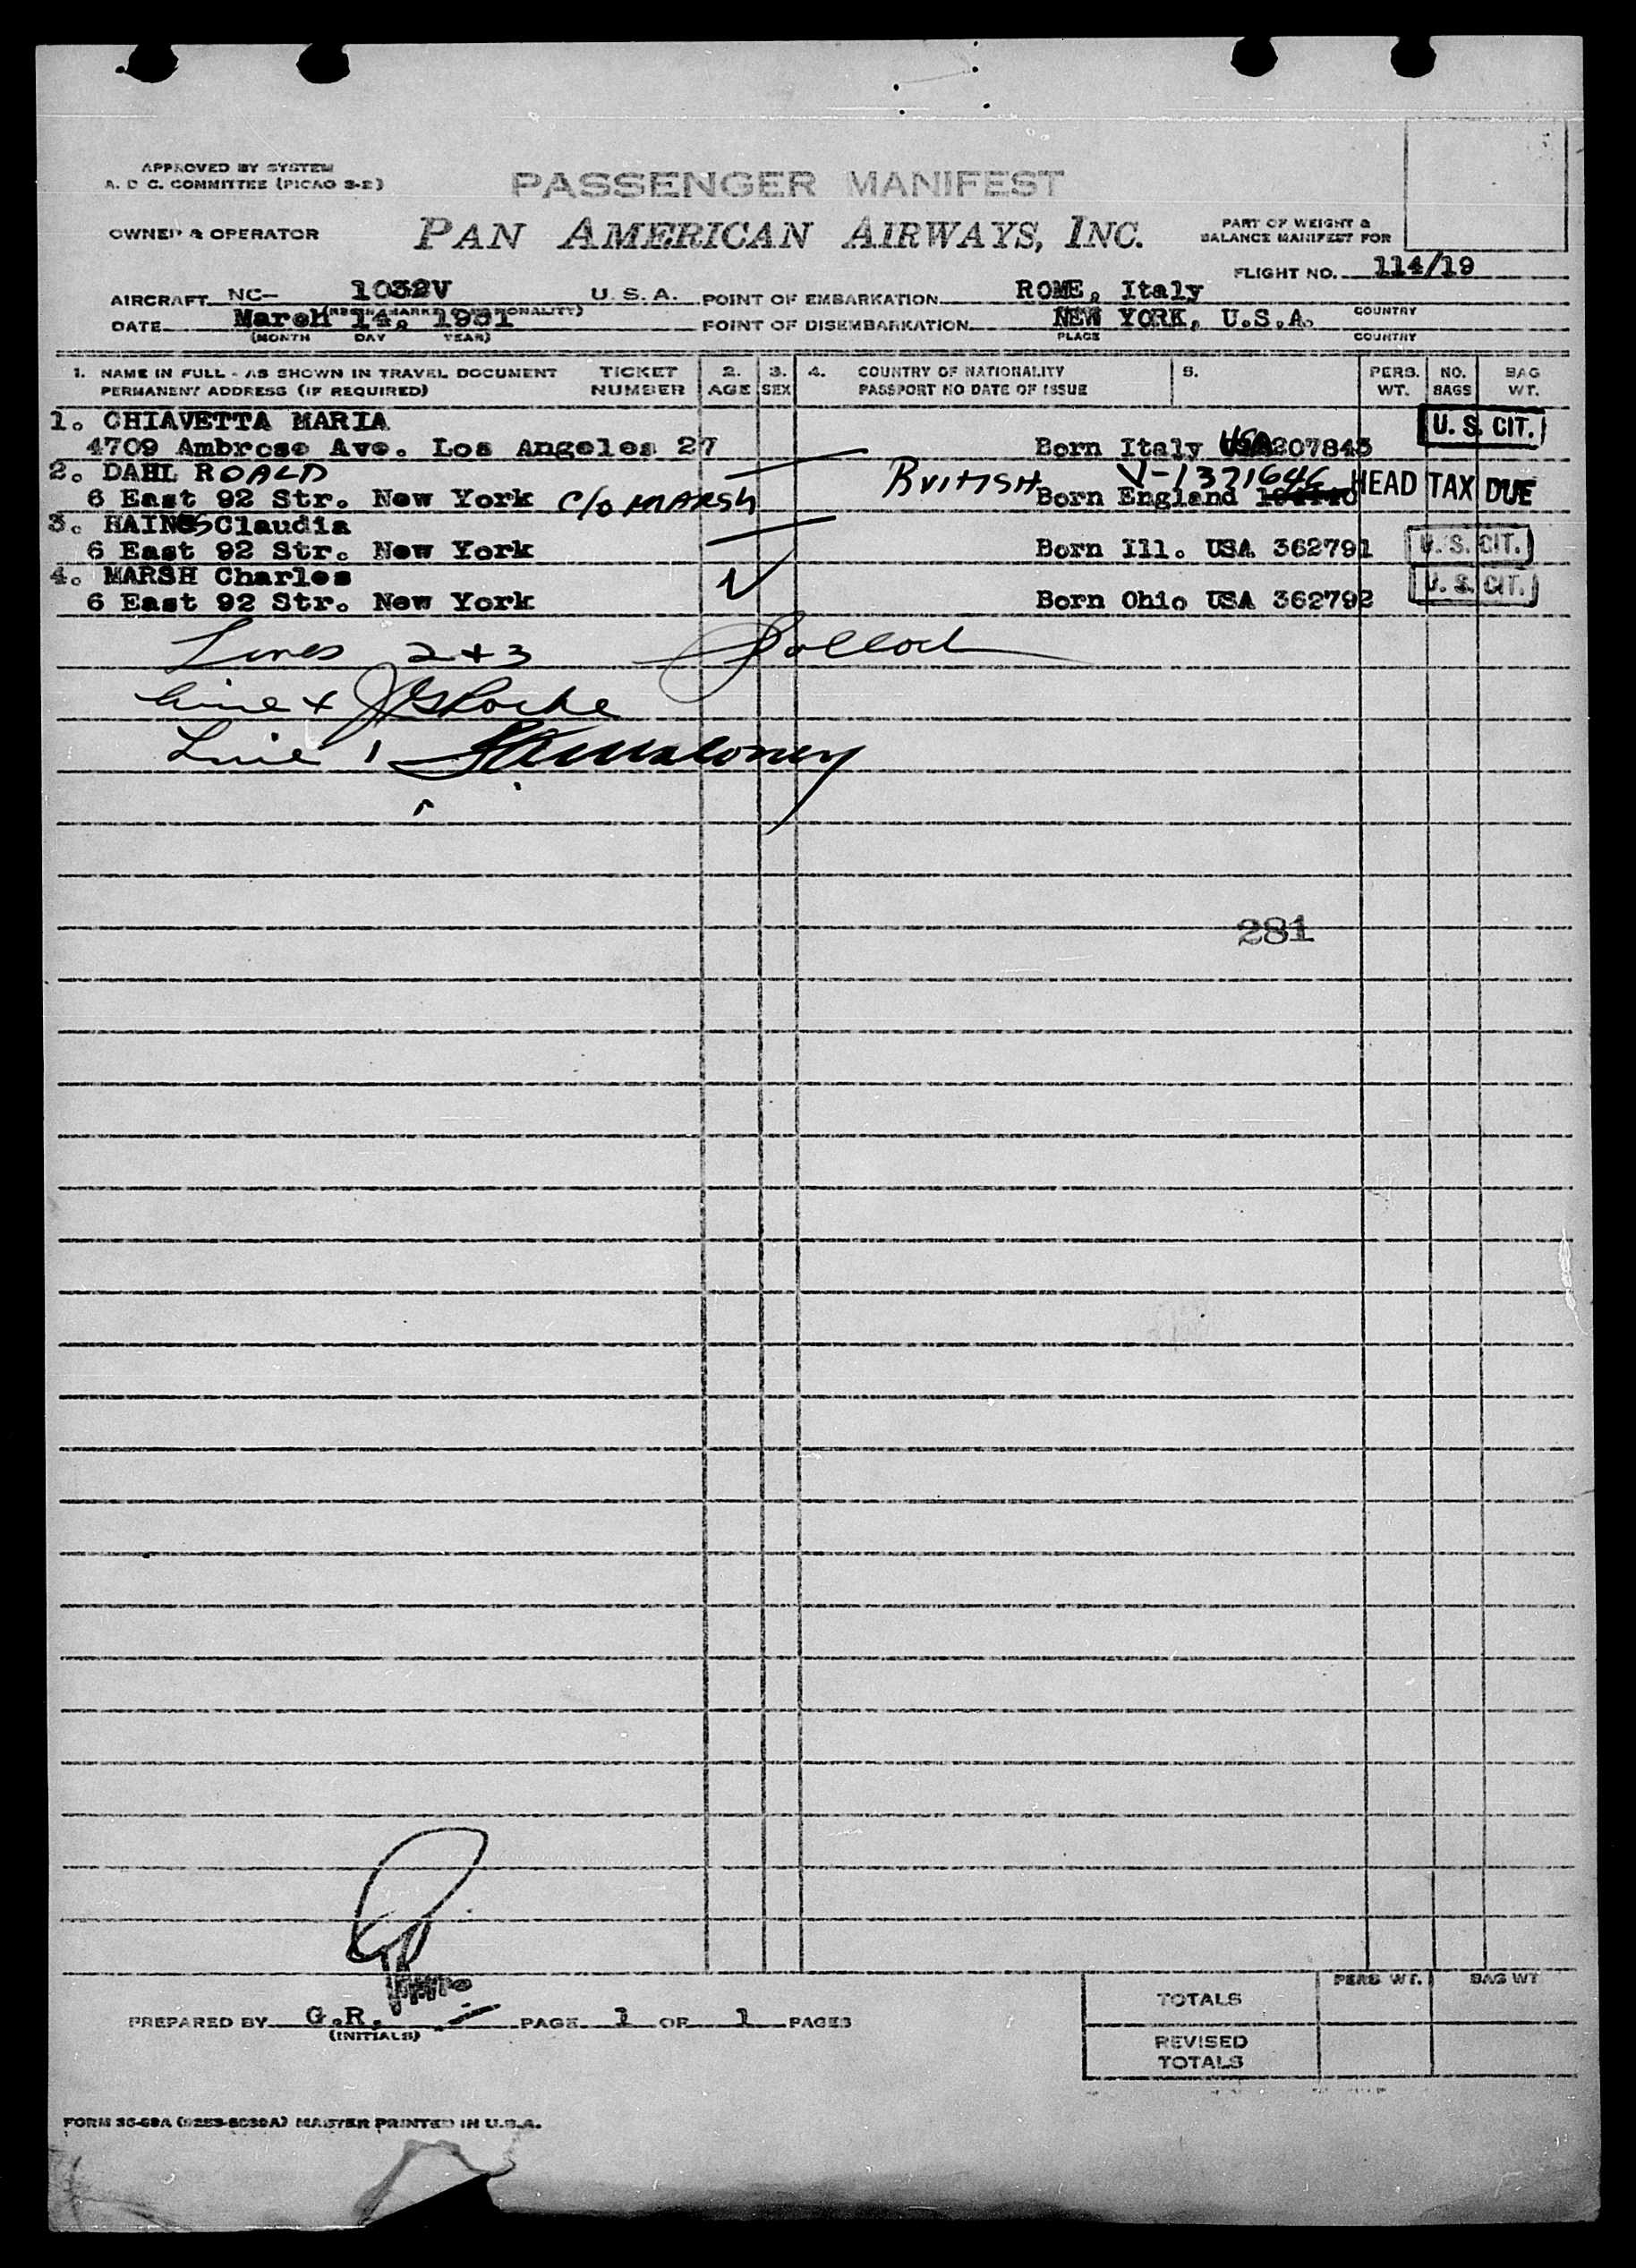 APPROVED BY SYSTEM
A. D C. COMMITTEE (PICAO 3-2)
PASSENGER MANIFEST
OWNER & OPERATOR PAN AMERICAN AIRWAYS, INC.
PART OF WEIGHT &
BALANCE MANIFEST FOR
FLIGHT NO. 114/19
AIRCRAFT NC- 1032V U. S. A. POINT OF EMBARKATION ROME, Italy
COUNTRY
DATE March 14, 1951 POINT OF DISEMBARKATION NEW YORK, U.S.A.
(MONTH DAY YEAR) PLACE COUNTRY
1. NAME IN FULL - AS SHOWN IN TRAVEL DOCUMENT TICKET 2. 3. 4. COUNTRY OF NATIONALITY 5. PERS. NO. BAG
PERMANENT ADDRESS (IF REQUIRED) NUMBER AGE SEX PASSPORT NO DATE OF ISSUE WT. BAGS WT.
1. CHIAVETTA MARIA U. S. CIT.
4709 Ambrose Ave. Los Angeles 27 Born Italy USA 207843
2. DAHL ROALD BRITISH V-1371646 HEAD TAX DUE
6 East 92 Str. New York C/O MARSH Born England
3. HAINES Claudia
6 East 92 Str. New York Born Ill. USA 362791 U. S. CIT.
4. MARSH Charles U. S. CIT.
6 East 92 Str. New York Born Ohio USA 362792
Lines 2+3
Line
Line 1
281
PREPARED BY G.R. PAGE 1 OF 1 PAGES
(INITIALS)
PERS WT. BAG WT
TOTALS
REVISED
TOTALS
MASTER PRINTED IN U.S.A.